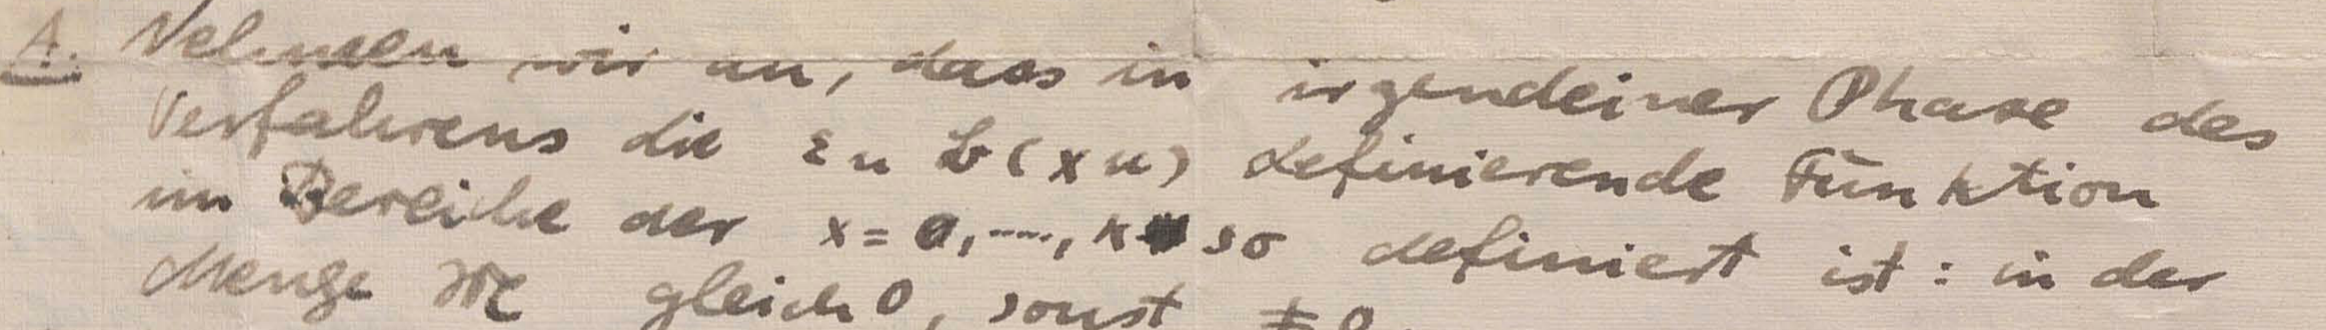 A. Nehmen wir an, dass in irgendeiner Phase des
Verfahrens die εu b(xu) definierende Funktion
im Bereiche der x = 0, ..., k so definiert ist: in der
Menge M gleich 0, sonst ≠ 0.